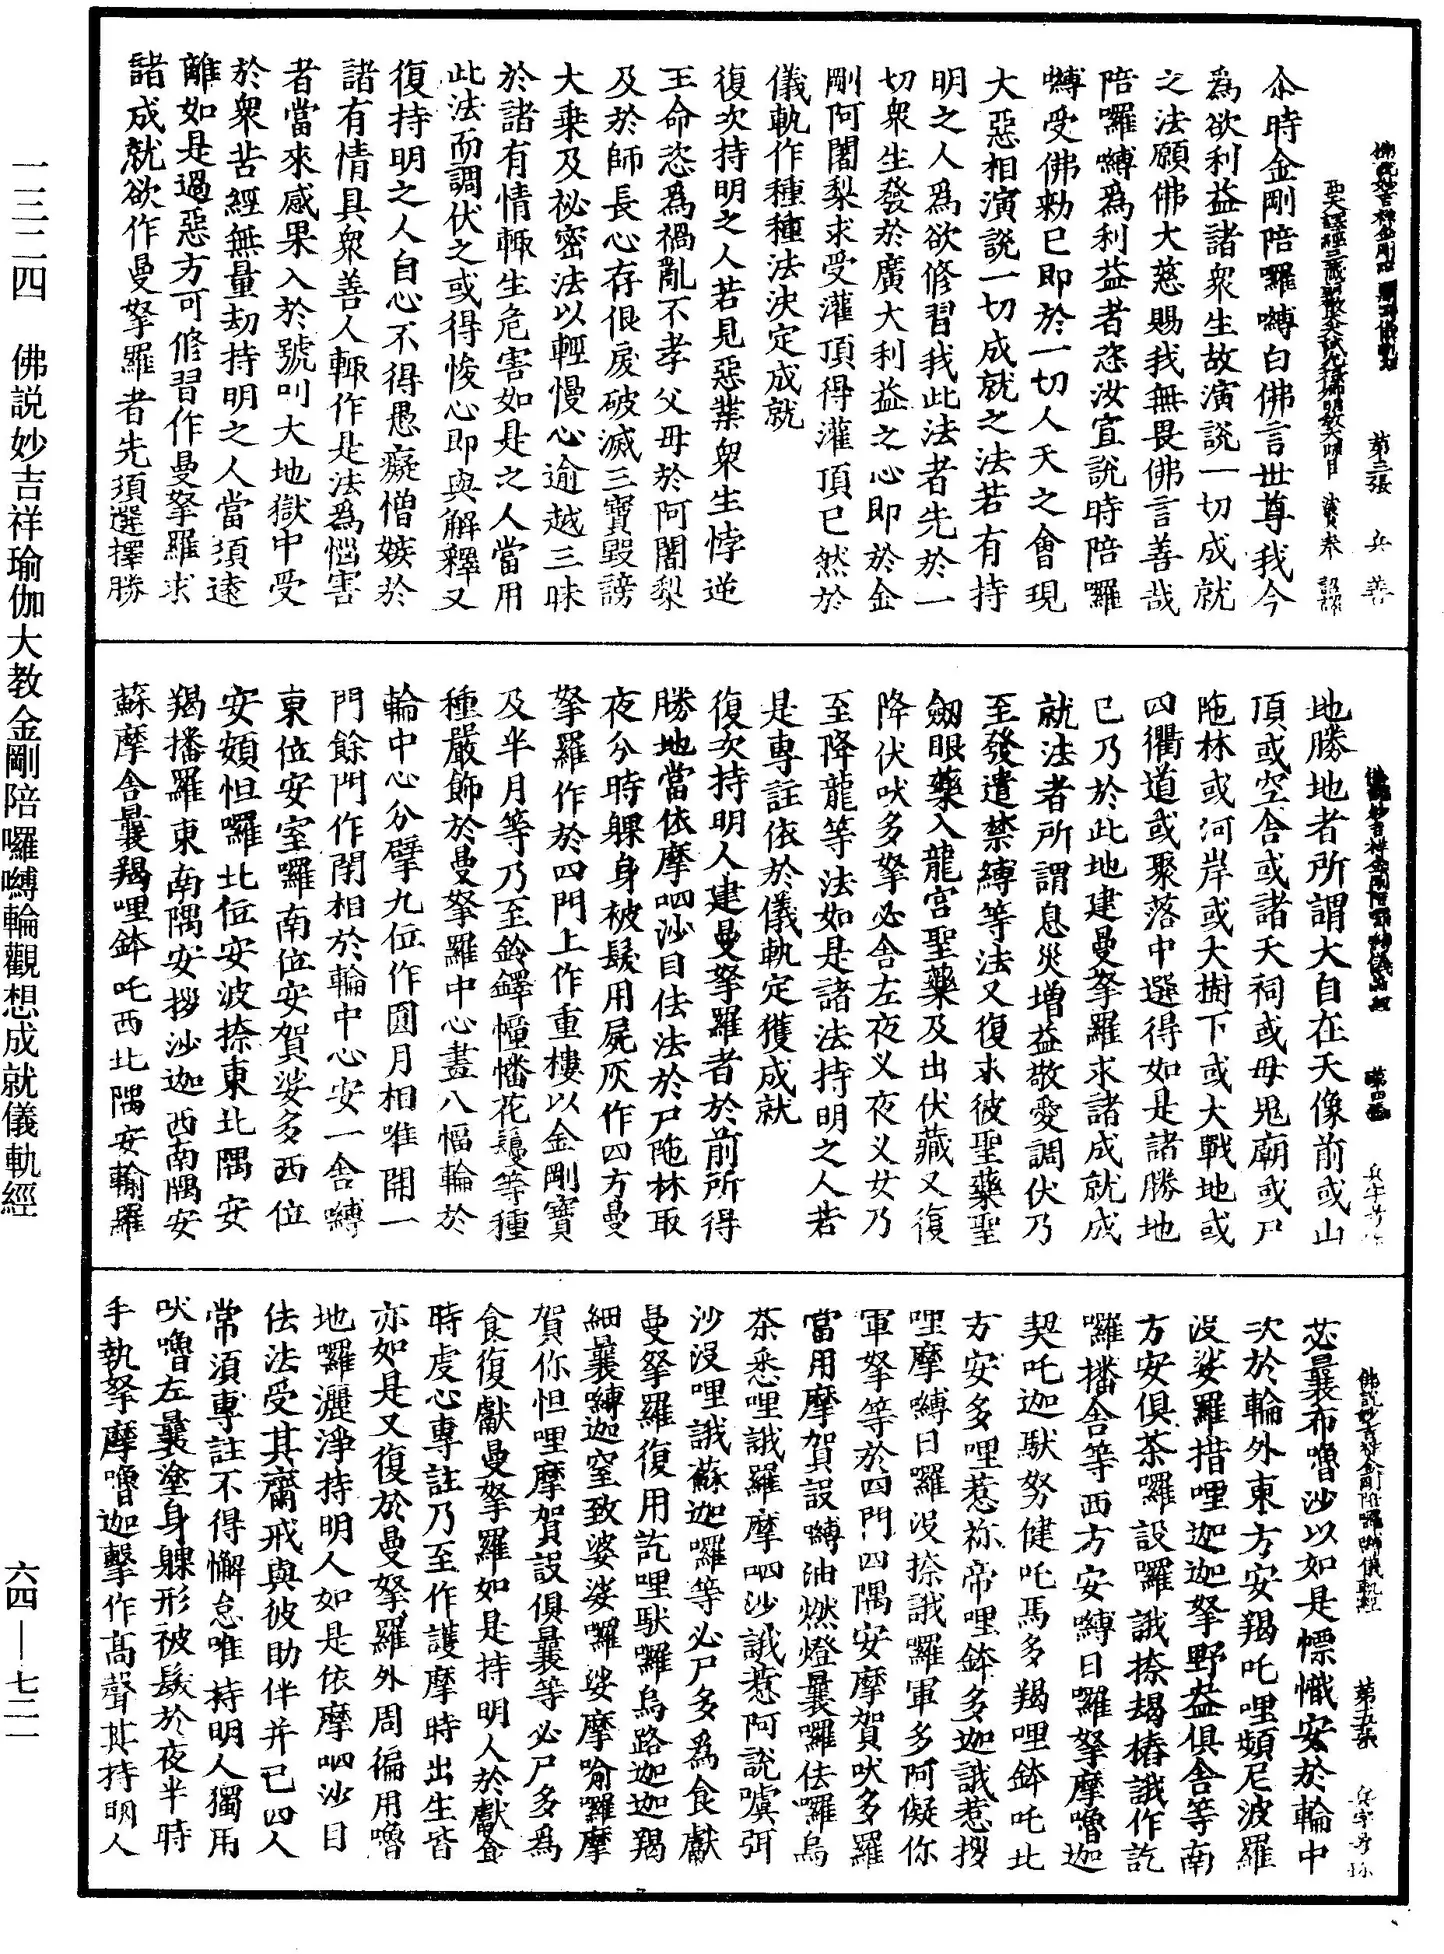 一三二四　佛説妙吉祥瑜伽大教金剛陪囉嚩輪觀想成就儀軌經
六四—七二一
第三張　兵　善
尒時金剛陪囉嚩白佛言世尊我今
爲欲利益諸衆生故演説一切成就
之法願佛大慈賜我無畏佛言善哉
陪囉嚩爲利益者恣汝宣說時陪囉
嚩受佛勑已即於一切人天之會現
大惡相演說一切成就之法若有持
明之人爲欲修習我此法者先於一
切衆生發於廣大利益之心即於金
剛阿闍梨求受灌頂得灌頂已然於
儀軌作種種法決定成就
復次持明之人若見惡業衆生悖逆
王命恣爲禍亂不孝父母於阿闍梨
及於師長心存佷戾破滅三寶毀謗
大乗及祕密法以輕慢心逾越三昧
於諸有情輙生危害如是之人當用
此法而調伏之或得悛心即與解釋又
復持明之人自心不得愚癡憎嫉於
諸有情具衆善人輙作是法爲惱害
者當來感果入於號叫大地獄中受
於衆苦經無量劫持明之人當須遠
離如是過惡方可修習作曼拏羅求
諸成就欲作曼拏羅者先須選擇勝
地勝地者所謂大自在天像前或山
頂或空舎或諸天祠或母鬼廟或尸
陁林或河岸或大樹下或大戰地或
四衢道或聚落中選得如是諸勝地
已乃於此地建曼拏羅求諸成就成
就法者所謂息災增益敬愛調伏乃
至發遣禁縛等法又復求彼聖藥聖
劒眼藥入龍宫聖藥及出伏藏又復
降伏吠多拏必舎左夜叉夜叉女乃
至降龍等法如是諸法持明之人若
是専註依於儀軌定獲成就
復次持明人建曼拏羅者於前所得
勝地當依摩呬沙目佉法於尸陁林取
夜分時躶身被髮用屍灰作四方曼
拏羅作於四門上作重樓以金剛寶
及半月等乃至鈴鐸幢幡花鬘等種
種嚴飾於曼拏羅中心畫八幅輪於
輪中心分擘九位作圓月相唯開一
門餘門作閉相於輪中心安一舎嚩
東位安室囉南位安賀娑多西位
安頞怛囉北位安波捺東北隅安
羯播羅東南隅安拶沙迦西南隅安
蘇摩舎曩羯哩鉢吒西北隅安輸羅
第五張
苾曩布嚕沙以如是幖幟安於輪中
次於輪外東方安羯吒哩頞尼波羅
沒娑羅措哩迦迦拏野益俱舎等南
方安俱荼囉設囉誐捺朅樁誐作訖
囉播舎等西方安嚩日囉拏摩嚕迦
契吒迦馱努健吒馬多羯哩鉢吒北
方安多哩惹祢帝哩鉢多迦誐惹拶
哩摩嚩日囉沒捺誐囉軍多阿儗你
軍拏等於四門四隅安摩賀吠多羅
當用摩賀設嚩油燃燈曩囉佉囉烏
荼悉哩誐羅摩呬沙誐惹阿說嚱弭
沙沒哩誐蘇迦囉等必尸多爲食獻
曼拏羅復用訖哩馱囉烏路迦迦羯
細曩嚩迦窒致婆娑囉娑摩喻囉摩
賀你怛哩摩賀設俱曩等必尸多爲
食復獻曼拏羅如是持明人於獻食
時虔心専註乃至作護摩時出生皆
亦如是又復於曼拏羅外周徧用嚕
地囉灑淨持明人如是依摩呬沙目
佉法受其齋戒與彼助伴并已四人
常須専註不得懈怠唯持明人獨用
吠嚕左曩塗身躶形被髮於夜半時
手執拏摩嚕迦擊作高聲其持明人